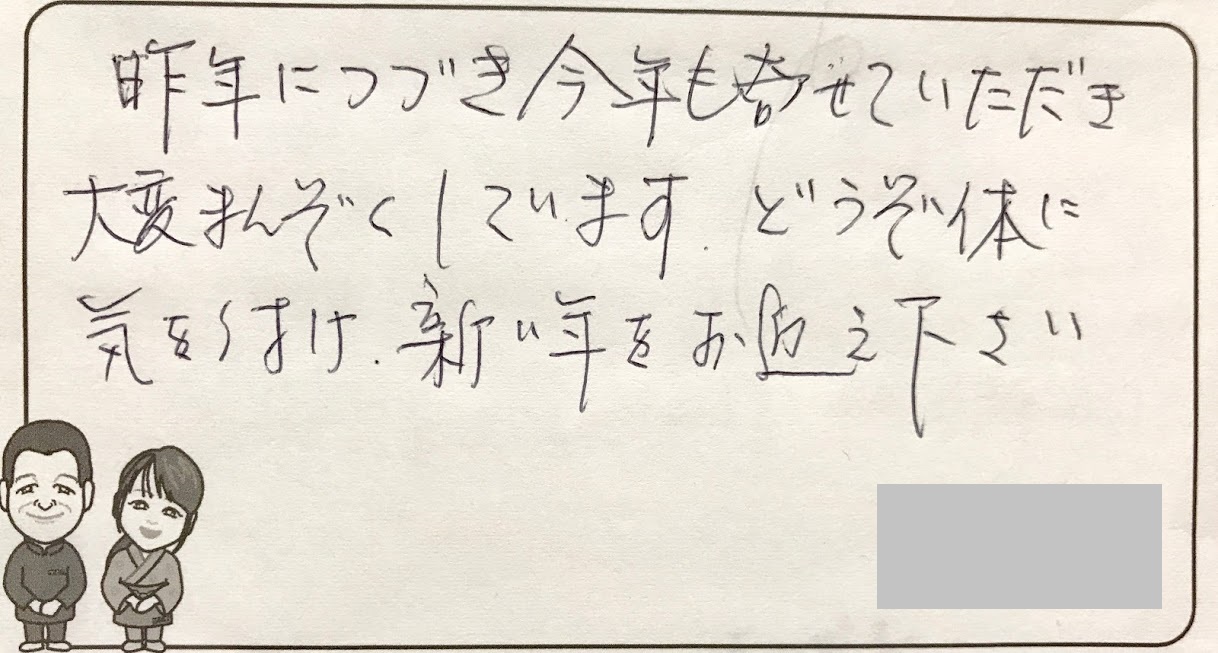 昨年につづき今年も寄せていただき
大変まんぞくしています. どうぞ体に
気をつけ. 新い年をお迎え下さい